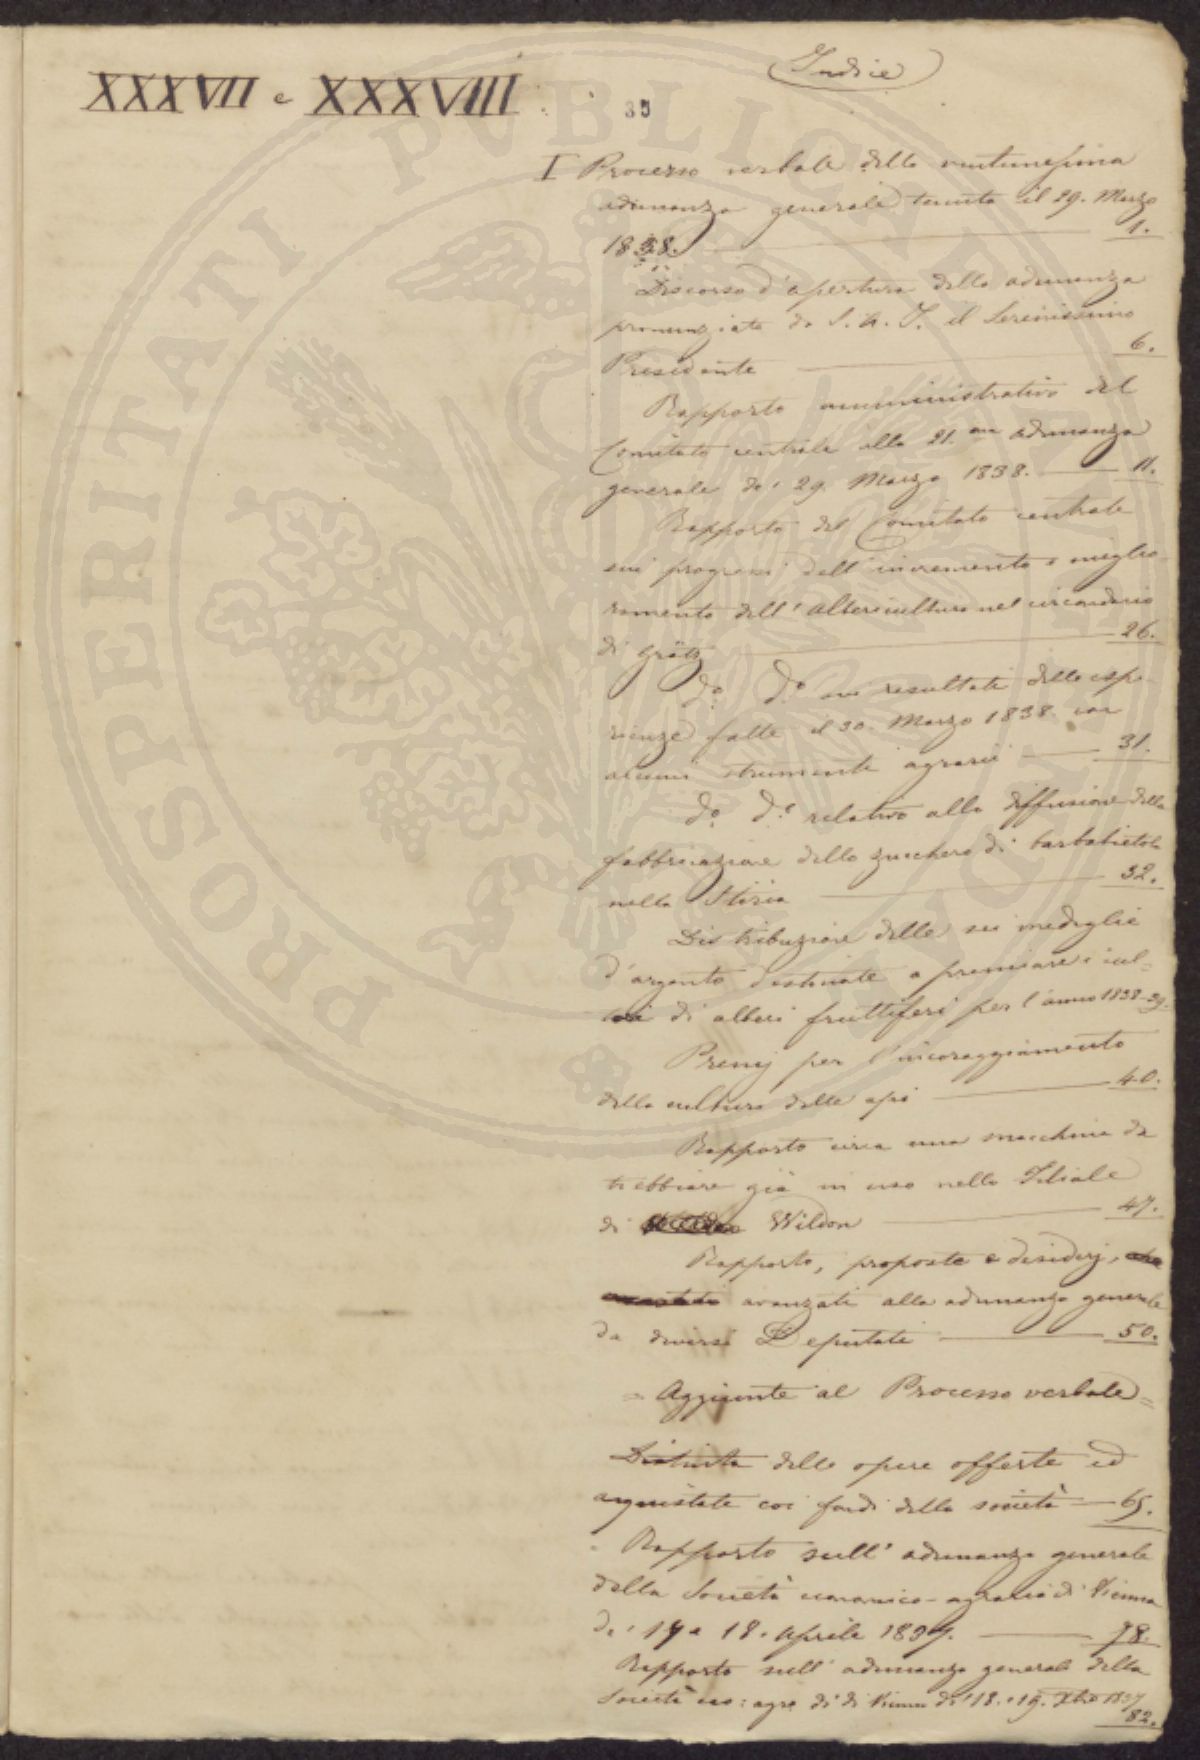 Indice
XXXVII e XXXVIII
35
I Processo verbale della ventunesima
adunanza generale tenuta il 29. Marzo
1838. 1.
Discorso d'apertura della adunanza
pronunziato da S. A. I. il Serenissimo
Presidente 6.
Rapporto amministrativo del
Comitato centrale alla 21.ma adunanza
generale de' 29. Marzo 1838. 11.
Rapporto del Comitato centrale
sui progressi dell'incremento e miglio
ramento dell'Albericultura nel circondario
di Grätz 26.
do. do. sui resultati delle espe-
rienze fatte il 30. Marzo 1838. con
alcuni strumenti agrarii 31.
do. do. relativo alla diffusione della
fabbricazione dello zucchero di barbabietola
nella Stiria 32.
Distribuzione delle sei medaglie
d'argento destinate a premiare i cul=
tori di alberi fruttiferi per l'anno 1838-39.
Premj per l'incoraggiamento
della cultura delle api 40.
Rapporto circa una macchina da
trebbiare già in uso nella Filiale
di Wildon 47.
Rapporto, proposte e desiderj,
avanzati alla adunanza generale
da diversi Deputati 50.
= Aggiunte al Processo verbale =
Distinta delle opere offerte ed
acquistate coi fondi della società 65.
Rapporto sull'adunanza generale
della Società economico-agraria di Vienna
de' 17 e 18. Aprile 1837. 78.
Rapporto sull'adunanza generale della
Società eco: agr. di Vienna de' 18. e 19. Xbre 1837
82.
PROSPERITATI PUBLICAE AUGENDAE